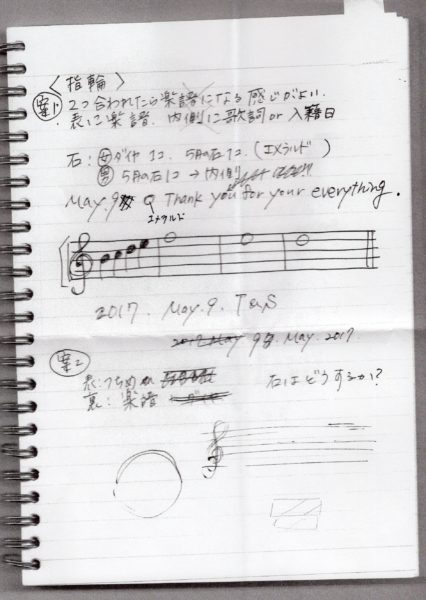 〈指輪〉
案1
2つ合わせたら楽譜になる感じがよい.
表に楽譜. 内側に歌詞 or 入籍日
石：女 ダイヤ 1コ. 5月の石1コ. (エメラルド)
男 5月の石1コ → 内側
May.9 Thank you for your everything.
エメラルド
2017. May. 9. T&S
2017 May 9. May. 2017
案2
表：つちめ
裏：楽譜
石はどうするか?